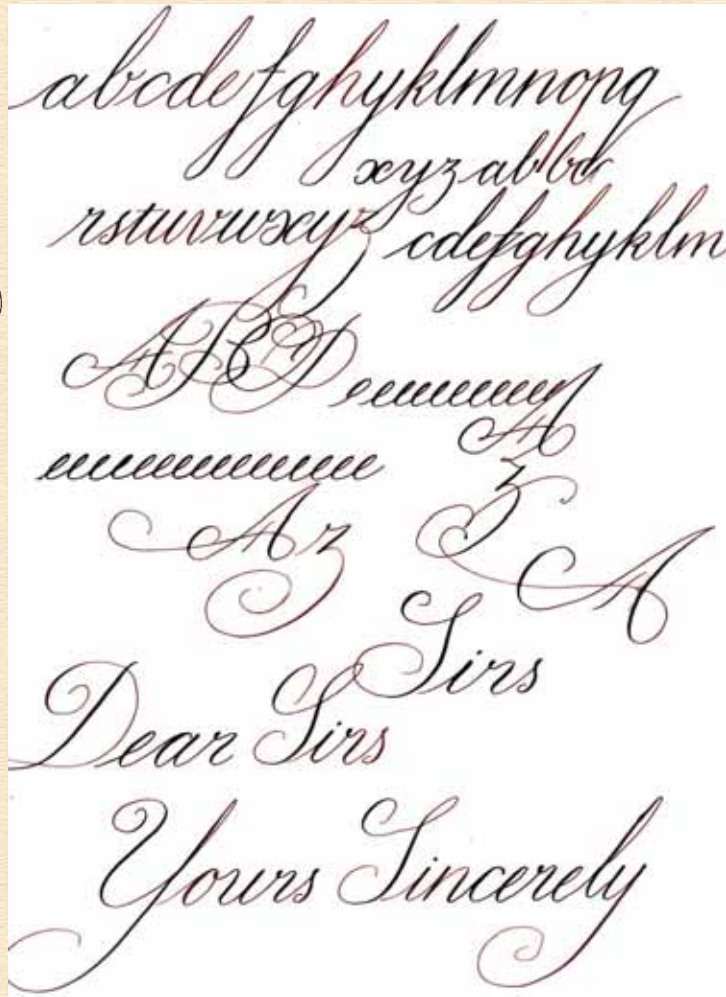 abcdefghyklmnopq
xyzabbcd
rstuvwxyz
cdefghyklm
ABD
eeeeeeeeee
A
eeeeeeeeeeeeeeee
z
Az
A
Sirs
Dear Sirs
Yours Sincerely